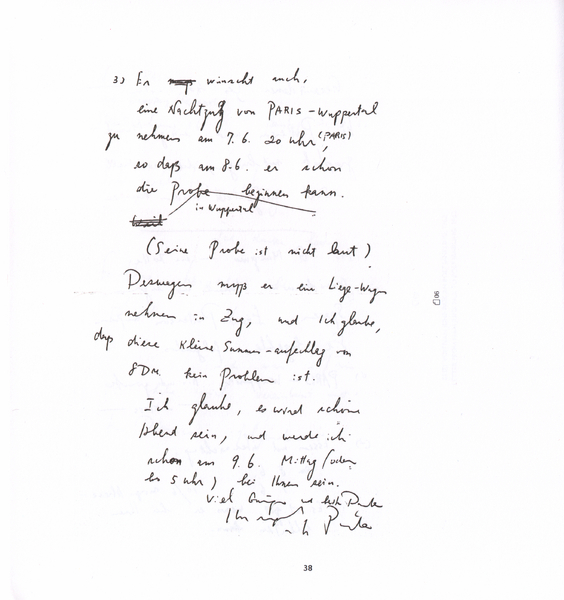 3) Er wünscht auch,
eine Nachtzug von PARIS-Wuppertal
zu nehmen am 7.6. 20 Uhr (PARIS),
so daß am 8.6. er schon
die Probe beginnen kann.
in Wuppertal
(Seine Probe ist nicht laut)
Deswegen muß er ein Liege-Wagen
nehmen in Zug, und Ich glaube,
daß diese kleine Summer-aufschlag von
8DM kein Problem ist.
Ich glaube, es wird schön
Abend sein, und werde ich
schon am 9.6. Mittag (oder
5 Uhr) bei Ihnen sein.
viel
Ihr
38